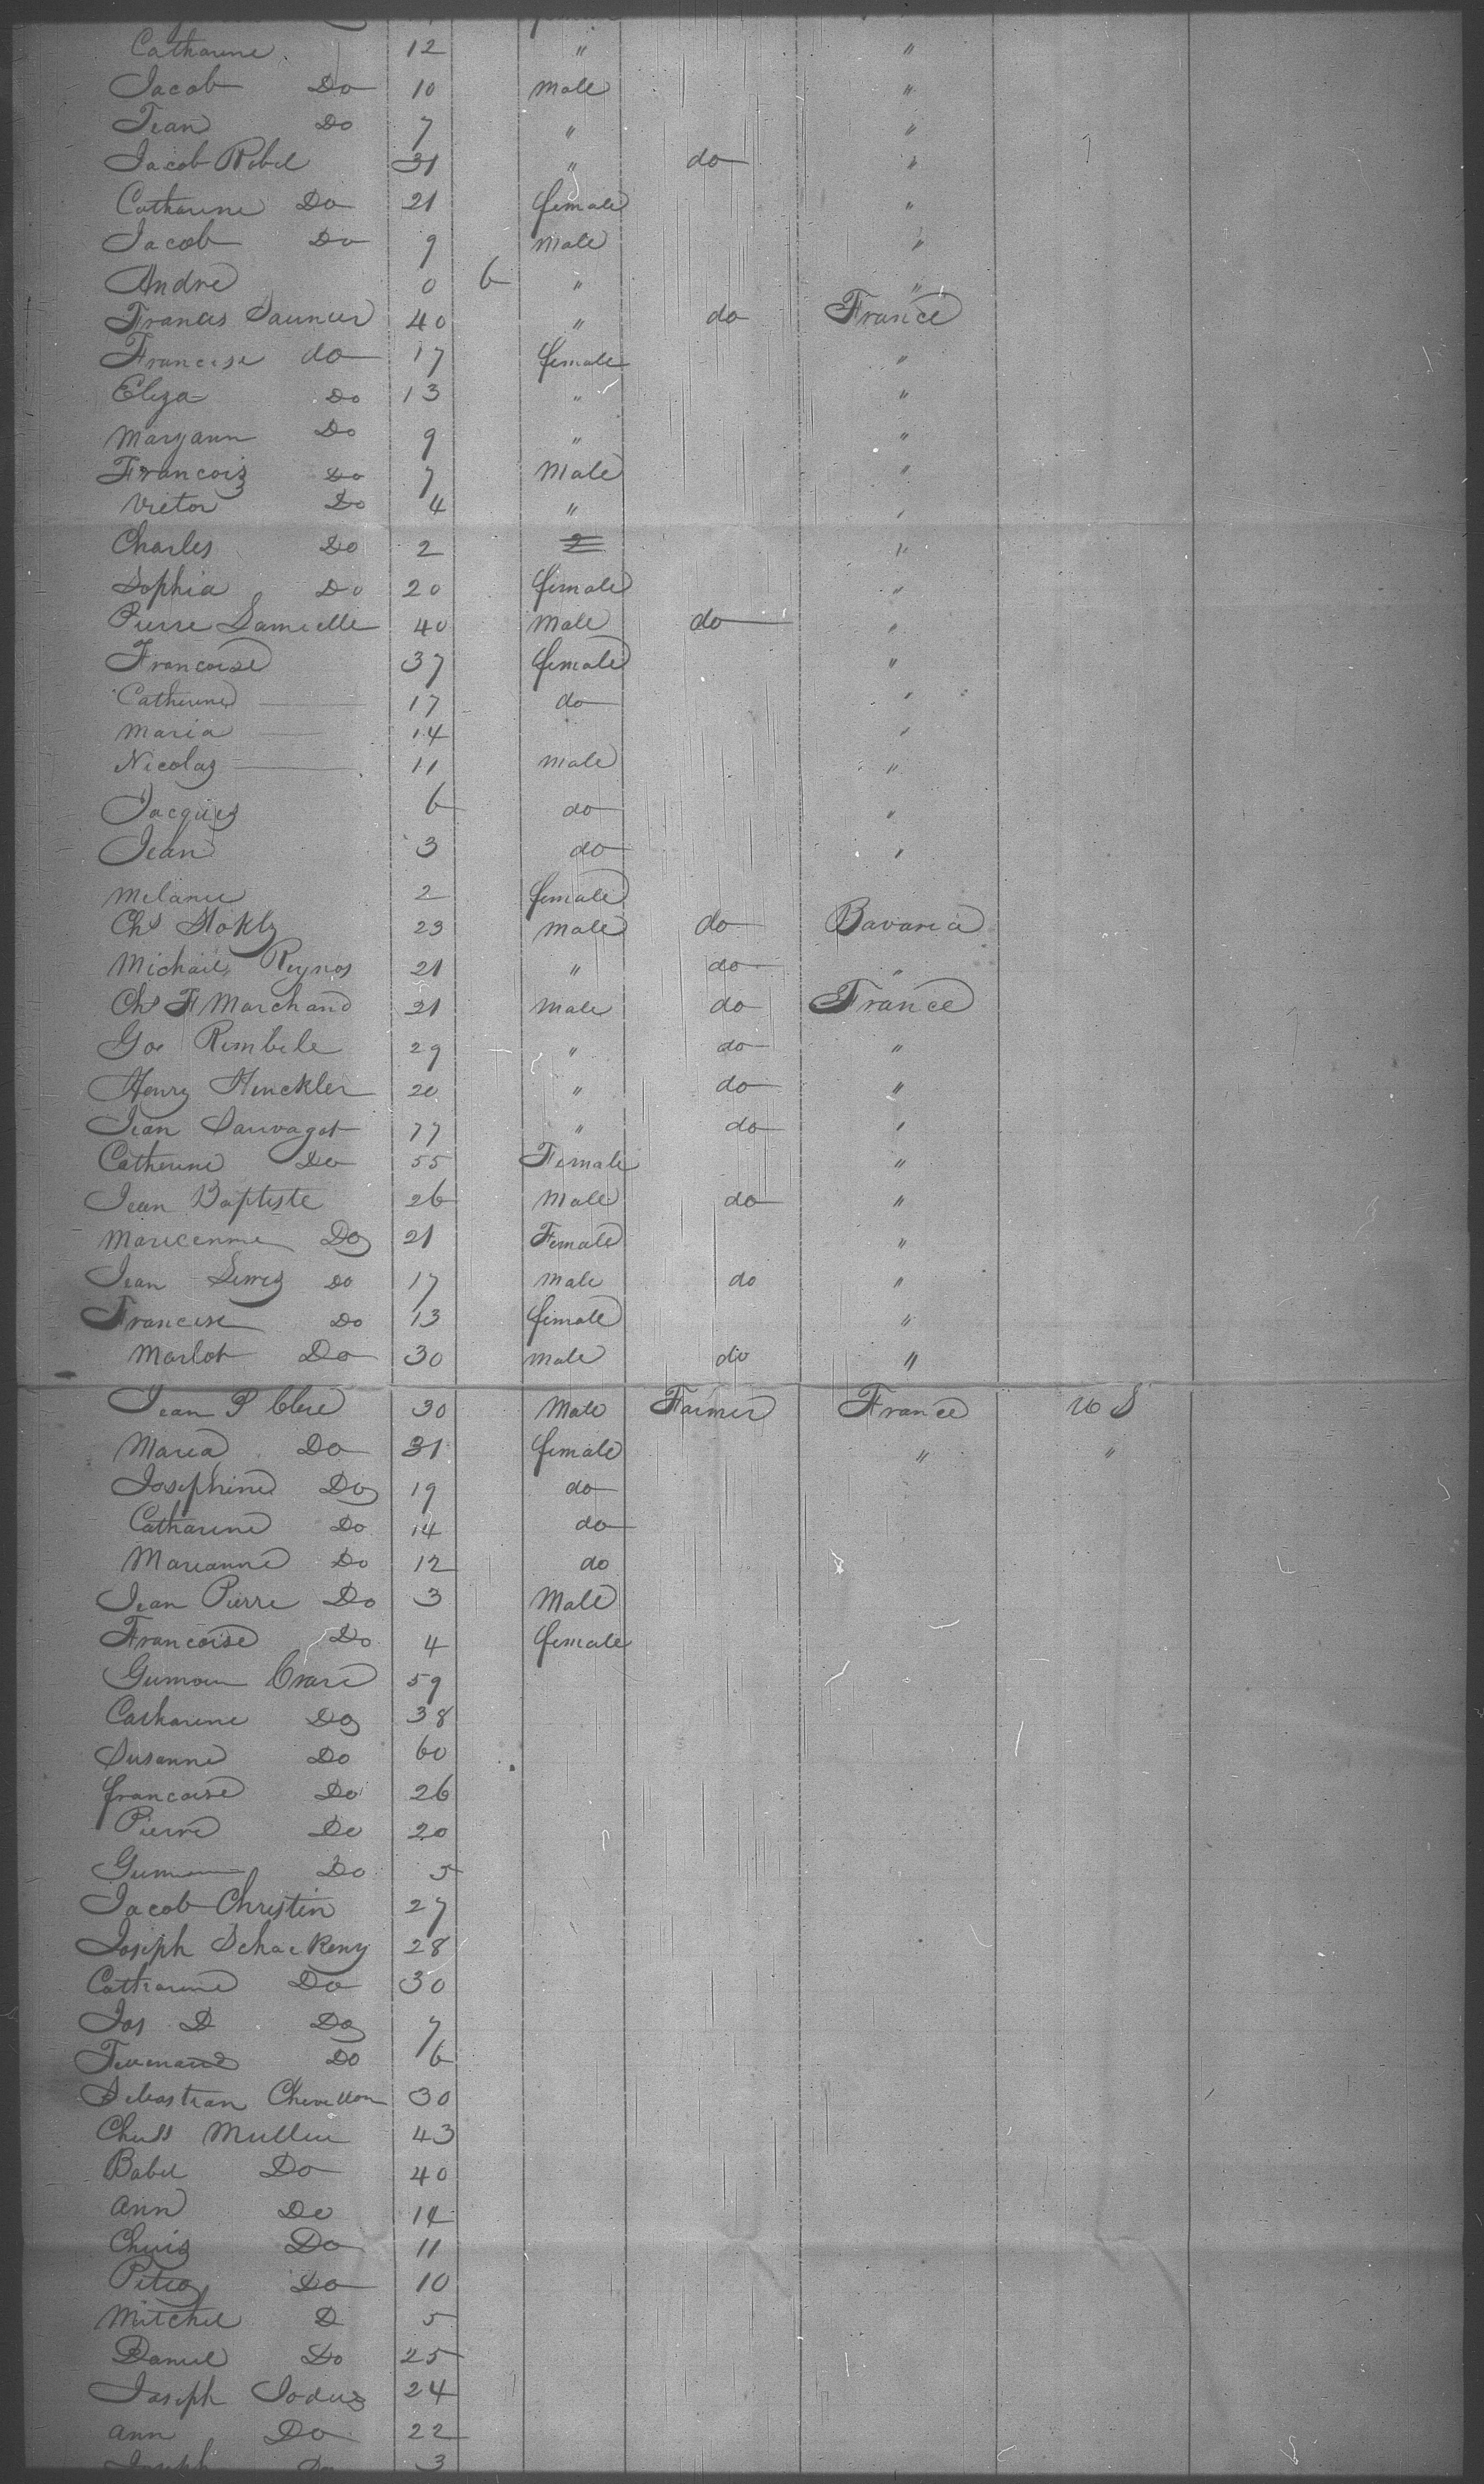 Catharine 12 " "
Jacob Do 10 Male "
Jean Do 7 " "
Jacob Rebel 31 " do "
Catharine Do 21 female "
Jacob Do 9 Male "
Andre 0 6 " "
Francis Saunier 40 " do France
Francise do 17 female "
Eliza Do 13 " "
Maryann Do 9 " "
Francois Do 7 Male "
Victor Do 4 " "
Charles Do 2 "
Sophia Do 20 female "
Pierre Lamielle 40 Male do "
Francoise 37 female "
Catherine 17 do "
Maria 14 "
Nicolas 11 Male "
Jacques 6 do "
Jean 3 do "
Melanie 2 female
Chs Hokly 23 Male do Bavaria
Michail Reynos 21 " do "
Chs F Marchand 21 Male do France
Geo Rimbele 29 " do "
Henry Henckler 20 " do "
Jean Sauvagot 77 " do "
Catherine Do 55 Female "
Jean Baptiste 26 Male do "
Marieanne Do 21 Female "
Jean Do 17 Male do "
Francise Do 13 female "
Marlot Do 30 Male do "
Jean P Clere 30 Male Farmer France U S
Maria Do 31 female " "
Josephine Do 19 do
Catharine Do 14 do
Marianne Do 12 do
Jean Pierre Do 3 Male
Francoise Do 4 female
Crare 59
Catharine Do 38
Susanne Do 60
francoise Do 26
Pierre Do 20
Do 5
Jacob Christin 27
Joseph Schackeny 28
Catharine Do 30
Jos D Do 7
Do 6
Sebastian Chevillon 30
Muller 43
Babel Do 40
Ann Do 14
Chris Do 11
Peter Do 10
Mitchel D 5
Daniel Do 25
Joseph Jodus 24
Ann Do 22
Joseph Do 3